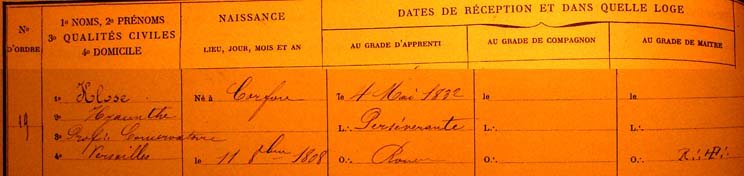 No
D'ORDRE
1o NOMS, 2o PRÉNOMS
3o QUALITÉS CIVILES
4o DOMICILE
NAISSANCE
LIEU, JOUR, MOIS ET AN
DATES DE RÉCEPTION ET DANS QUELLE LOGE
AU GRADE D'APPRENTI
AU GRADE DE COMPAGNON
AU GRADE DE MAITRE
19
1o Klose
2o Hyacinthe
3o Profr Conservatoire
4o Versailles
Né à Corfou
le 11 8bre 1808
le 4 Mai 1832
L∴ Persévérante
O∴ Rouen
le
L∴
O∴
le
L∴
O∴